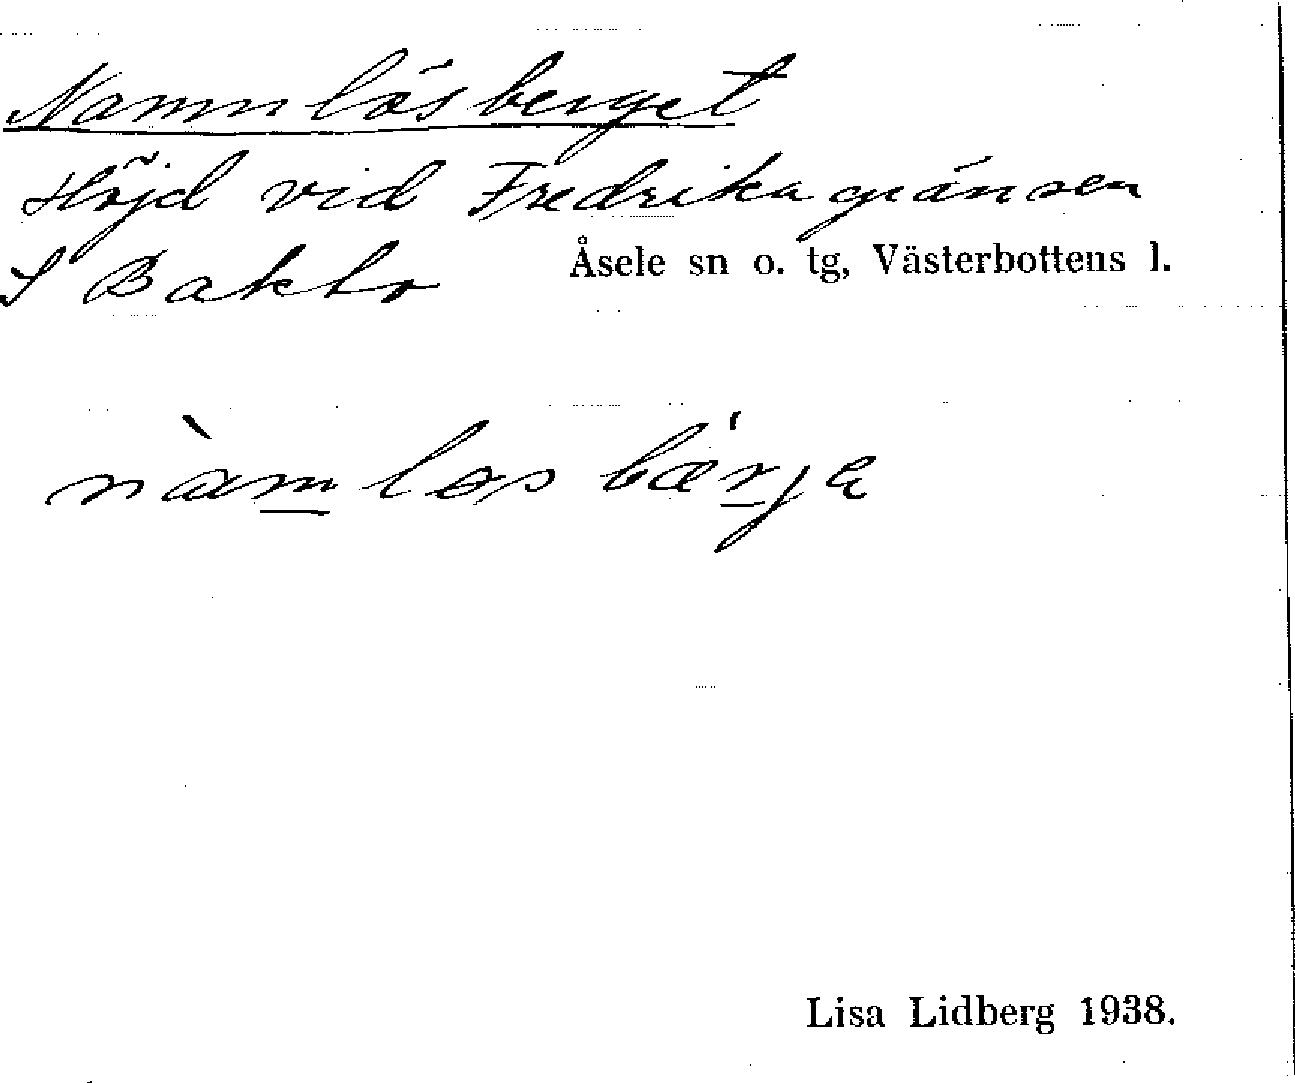 Namnlösberget
Höjd vid Fredrikagränsen
S Baklo Åsele sn o. tg, Västerbottens l.
nàmløsbæ'rjɐ
Lisa Lidberg 1938.